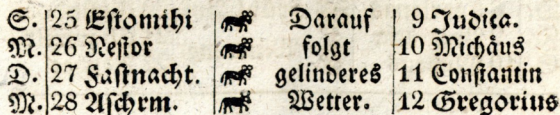 S. 25 Eſtomihi Darauf 9 Judica.
M. 26 Neſtor folgt 10 Michäus
D. 27 Faſtnacht. gelinderes 11 Conſtantin
M. 28 Aſchrm. Wetter. 12 Gregorius